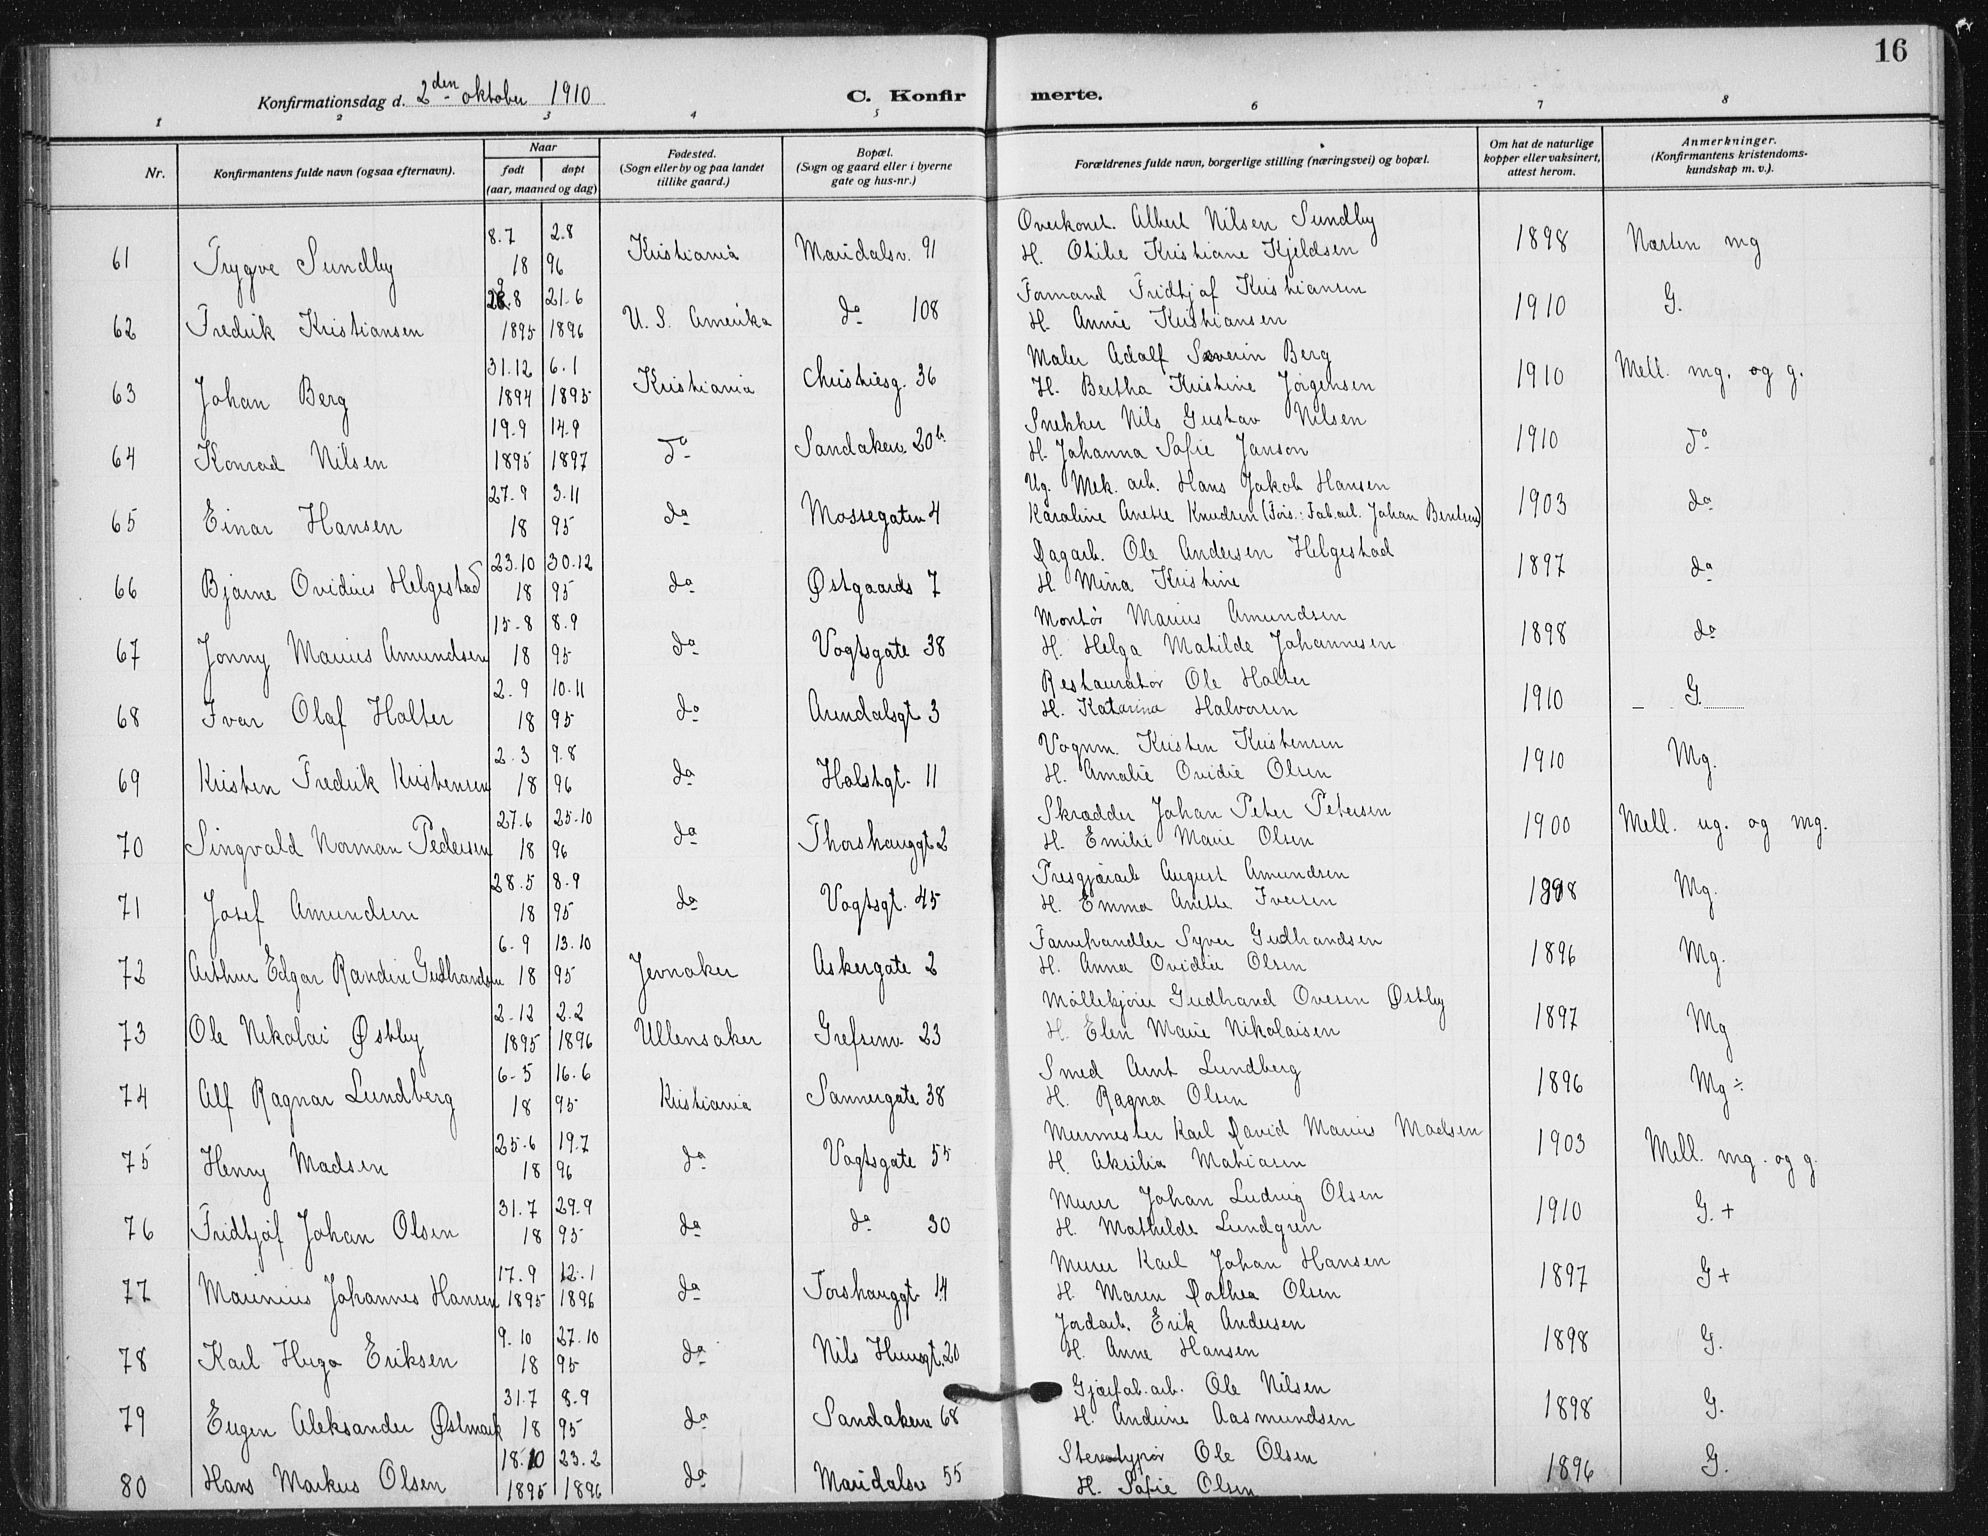 16
Konfirmationsdag d. 2den oktober 1910
C. Konfirmerte.
1 2 3 4 5 6 7 8
Nr. Konfirmantens fulde navn (ogsaa efternavn). Naar født døpt (aar, maaned og dag) Fødested. (Sogn eller by og paa landet tillike gaard.) Bopæl. (Sogn og gaard eller i byerne gate og hus-nr.) Forældrenes fulde navn, borgerlige stilling (næringsvei) og bopæl. Om hat de naturlige kopper eller vaksinert, attest herom. Anmerkninger. (Konfirmantens kristendomskundskap m. v.).
8.7 2.8 Overkonst. Albert Nilsen Sundby
61 Trygve Sundby 18 96 Kristiania Maridalsv. 91 H. Otilie Kristiane Kjeldsen 1898 Næsten mg
8 21.6 Formand Fridtjof Kristiansen
62 Fredrik Kristiansen 1895 1896 U. S. Amerika do 108 H. Annie Kristiansen 1910 G.
31.12 6.1 Maler Adolf Severin Berg
63 Johan Berg 1894 1895 Kristiania Christiesg. 36 H. Bertha Kristine Jørgensen 1910 Mell. mg. og g.
19.9 14.9 Snekker Nils Gustav Nilsen
64 Konrad Nilsen 1895 1897 do Sandakerv. 20b H. Johanna Sofie Janson 1910 do
27.9 3.11 Ug. Mek. arb. Hans Jakob Hansen
65 Einar Hansen 18 95 do Mossegaten 4 Karoline Anette Knudsen (Fors.: Fab.arb. Johan Bentsen) 1903 do
23.10 30.12 Dagarb. Ole Andersen Helgestad
66 Bjarne Ovidius Helgestad 18 95 do Østgaards 7 H Mina Kristine 1897 do
15.8 8.9 Montør Marius Amundsen
67 Jonny Marius Amundsen 18 95 do Vogtsgate 38 H. Helga Matilde Johannesen 1898 do
2.9 10.11 Restauratør Ole Holter
68 Ivar Olaf Holter 18 95 do Arendalsgt 3 H. Katarina Halvorsen 1910 G.
2.3 9.8 Vognm. Kristen Kristensen
69 Kristen Fredrik Kristensen 18 96 do Holstgt. 11 H. Amalie Ovidie Olsen 1910 Mg.
27.6 25.10 Skrædder Johan Peter Petersen
70 Singvald Norman Pedersen 18 96 do Thorshauggt 2 H. Emilie Marie Olsen 1900 Mell. ug. og mg.
28.5 8.9 Presgjærarb August Amundsen
71 Josef Amundsen 18 95 do Vogtsgt. 45 H. Emma Anette Iversen 1898 Mg.
6.9 13.10 Farvehandler Syver Gudbrandsen
72 Arthur Edgar Randin Gudbrandsen 18 95 Jevnaker Askergate 2 H. Anna Ovidia Olsen 1896 Mg.
2.12 2.2 Møllekjører Gudbrand Ovesen Østby
73 Ole Nikolai Østby 1895 1896 Ullensaker Grefsenv. 23 H. Elen Marie Nikolaisen 1897 Mg
6.5 16.6 Smed Arnt Lundberg
74 Alf Ragnar Lundberg 18 95 Kristiania Sannergate 38 H. Ragna Olsen 1896 Mg ÷
25.6 19.7 Murmester Karl David Marius Madsen
75 Henry Madsen 18 96 do Vogtsgate 55 H. Aksilia Mahiasen 1903 Mell. mg. og g.
31.7 29.9 Murer Johan Ludvig Olsen
76 Fridtjof Johan Olsen 18 95 do do 30 H. Mathilde Lundgren 1910 G. +
17.9 12.1 Murer Karl Johan Hansen
77 Marinius Johannes Hansen 1895 1896 do Torshauggt. 14 H. Maren Dorthea Olsen 1897 G +
9.10 27.10 Jordarb. Erik Andersen
78 Karl Hugo Eriksen 18 95 do Nils Huusgt. 20 H. Anne Hansen 1898 G.
31.7 8.9 Gjærfab.arb. Ole Nilsen
79 Eugen Aleksander Østmark 18 95 do Sandakerv 68 H. Andrine Aasmundsen 1898 G.
18.10 23.2 Stereotypør Ole Olsen
80 Hans Markus Olsen 1895 1896 do Maridalsv 55 H. Sofie Olsen 1896 G.